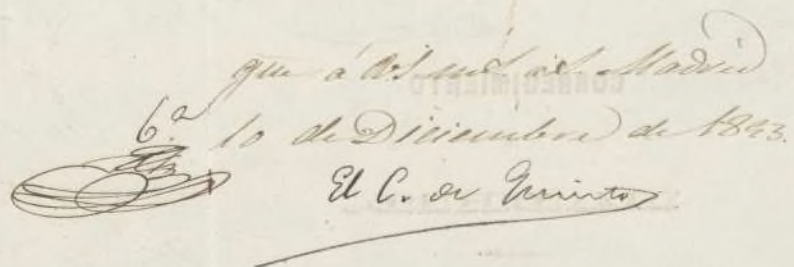 que á Vs. ms. as. Madrid
6.ª 10 de Diciembre de 1843.
El C. de Quinto